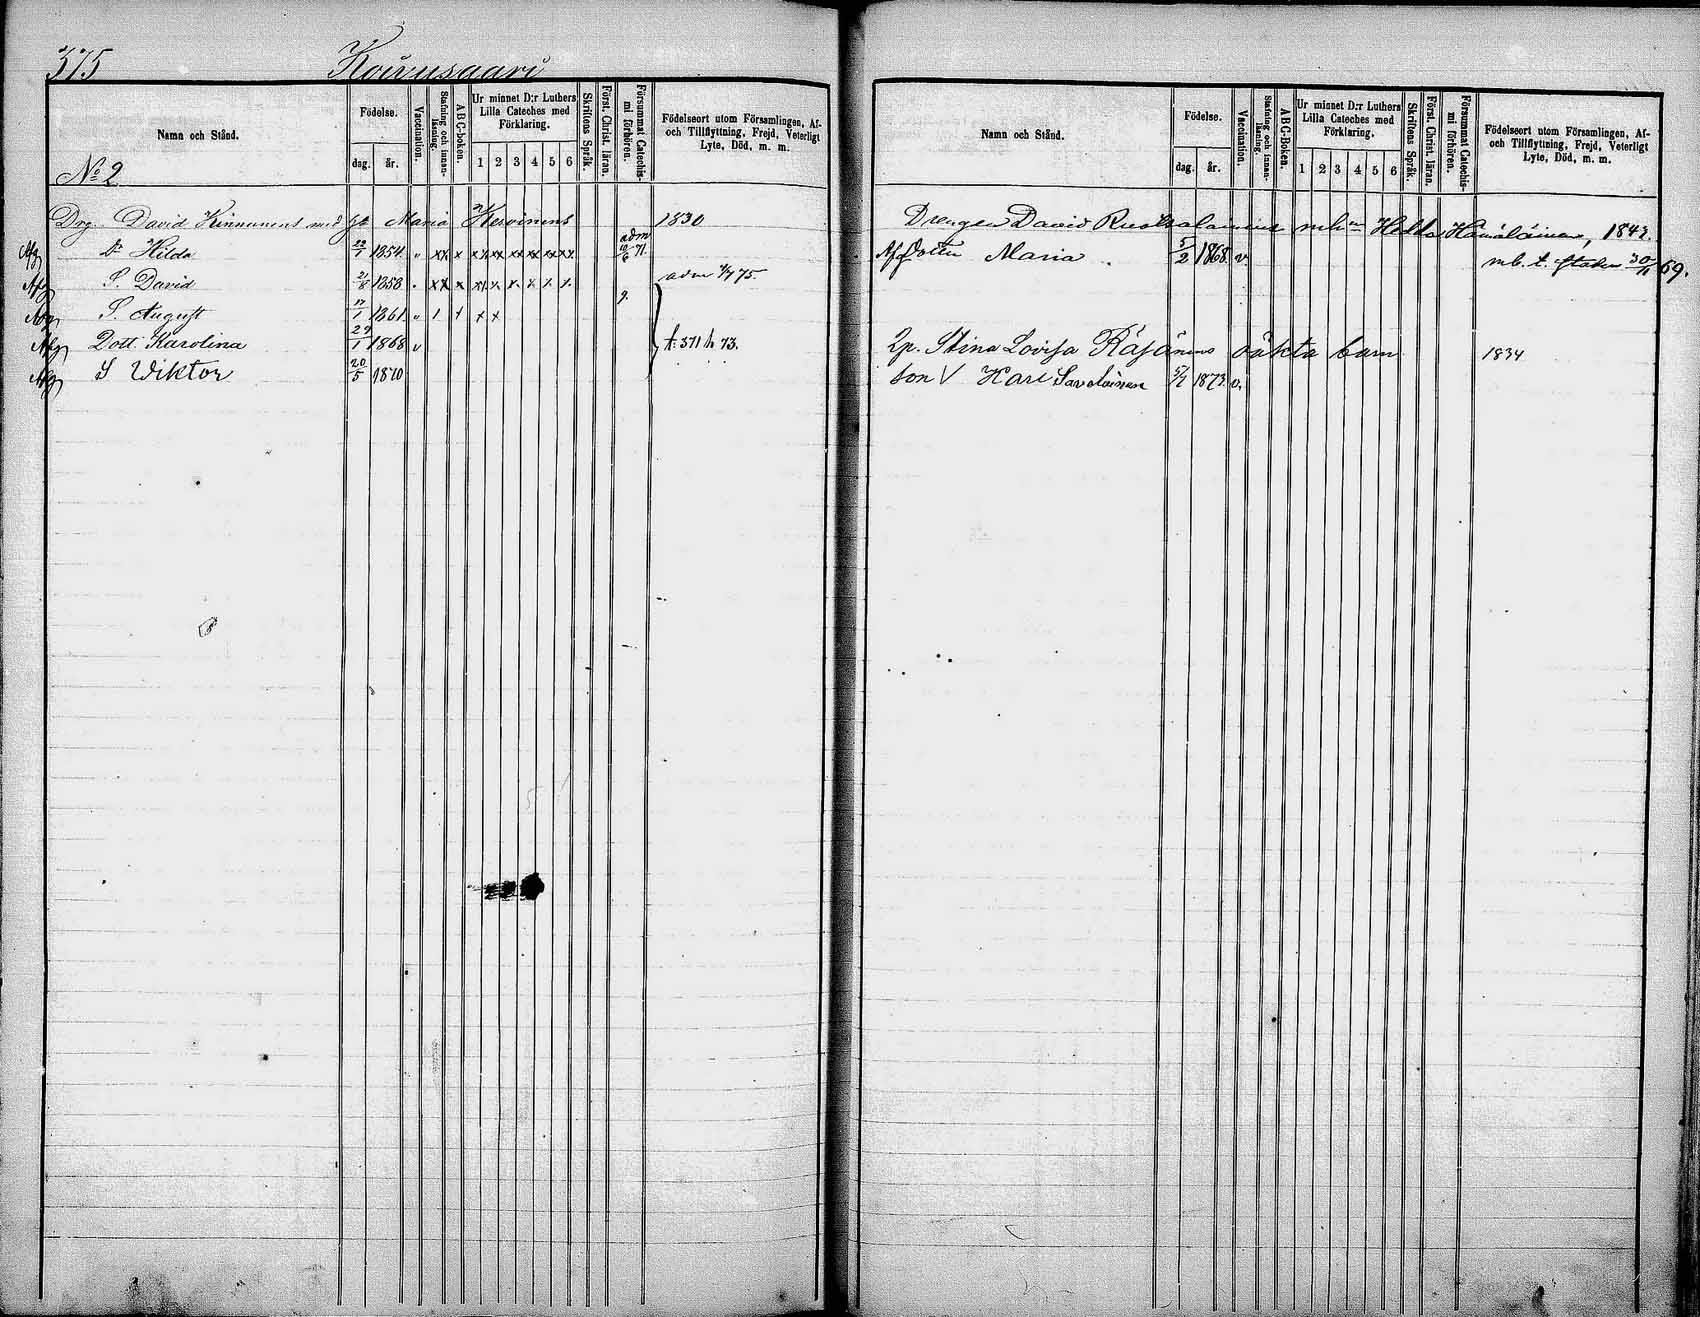 375 Koivusaari
Namn och Stånd.
Födelse.
dag. år.
Vaccination.
Stafning och innan-läsning.
ABC-boken.
Ur minnet D:r Luthers
Lilla Cateches med
Förklaring.
1 2 3 4 5 6
Skriftens Språk.
Först. Christ. läran.
Försummat Catechis-mi förhören.
Födelseort utom Församlingen, Af-
och Tillflyttning, Frejd, Veterligt
Lyte, Död, m. m.
No 2
Drg. David Kinnunens med Maria Kervinens 1830
Afg Dr Hilda 22/1 1854 " xx x xx xx xx xx xx xx adm 10/6 71.
Afg S. David 21/8 1858 " xx x adm 75
Afg S. August 1861 " 1 x x x
Afg Dott Karolina 29/1 1868 v t. 371 73.
Afg S Wiktor 20/5 1870
Namn och Stånd.
Födelse.
dag. år.
Vaccination.
Stafning och innan-läsning.
ABC-Boken.
Ur minnet D:r Luthers
Lilla Cateches med
Förklaring.
1 2 3 4 5 6
Skriftens Språk.
Först. Christ. läran.
Försummat Catechis-mi förhören.
Födelseort utom Församlingen, Af-
och Tillflyttning, Frejd, Veterligt
Lyte, Död, m. m.
Drengen David Ruotsalainens Hedda Hämäläinen, 1843.
Af Dotter Maria 5/2 1868. v. mb. t. staden 30/11 69.
Stina Lovisa Räsänens oäkta barn 1834
Son V Karl Savolainen 1873. v.